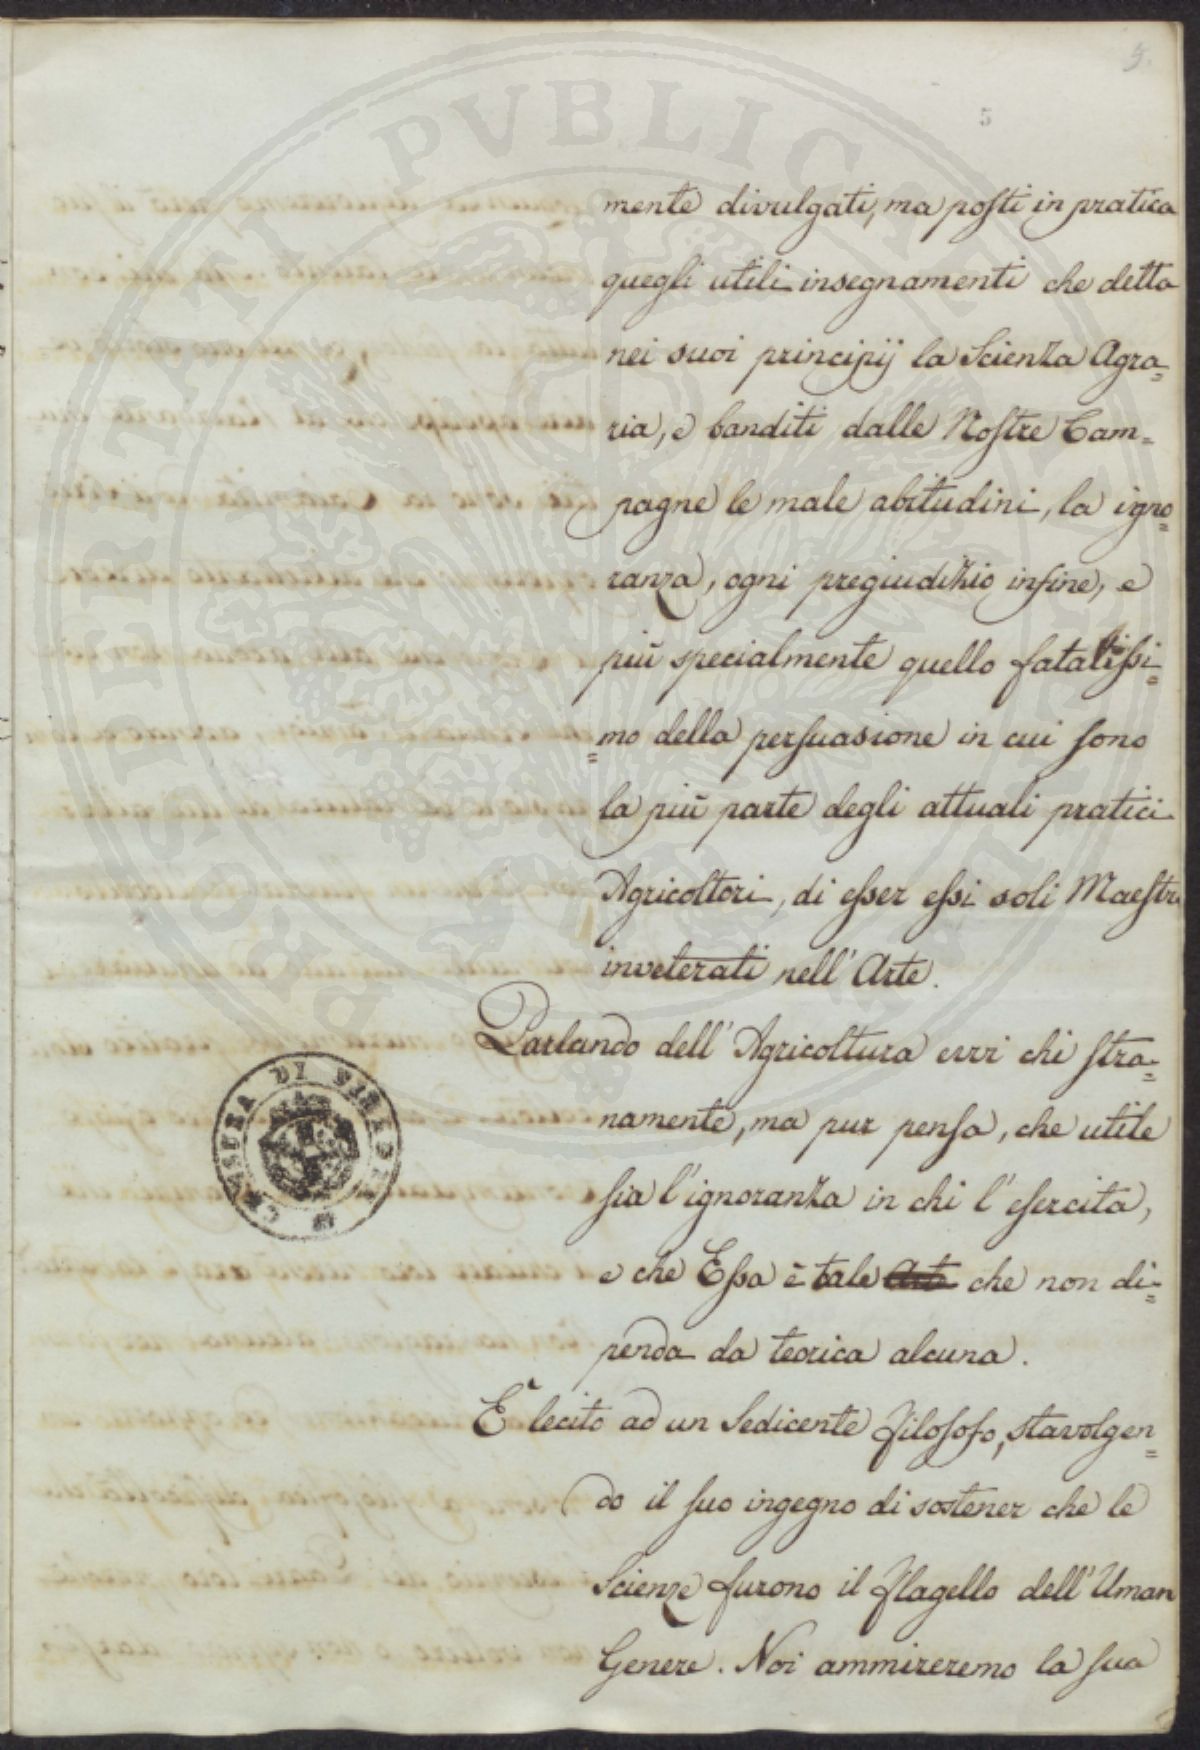 5.
5
mente divulgati, ma posti in pratica
quegli utili insegnamenti che detta
nei suoi principij la Scienza Agra=
ria, e banditi dalle Nostre Cam=
pagne le male abitudini, la igno=
ranza, ogni pregiudizio infine, e
più specialmente quello fatalissi=
=mo della persuasione in cui sono
la più parte degli attuali pratici
Agricoltori, di esser essi soli Maestri
inveterati nell' Arte.
Parlando dell' Agricoltura evvi chi stra=
namente, ma pur pensa, che utile
sia l'ignoranza in chi l' esercita,
e che Essa è tale Arte che non di=
penda da teorica alcuna.
E' lecito ad un Sedicente filosofo, stavolgen=
do il suo ingegno di sostener che le
Scienze furono il flagello dell' Uman
Genere. Noi ammireremo la sua
CENSURA DI FIRENZE
PROSPERITATI PVBLICAE